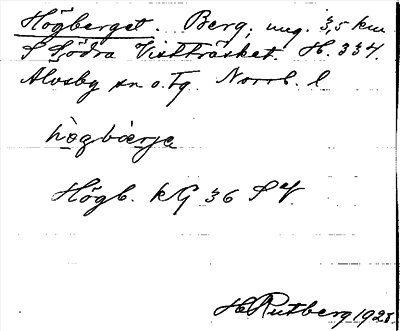 Högberget. Berg, ung. 3,5 km
S Södra Vistträsket. H. 334.
Älvsby sn o. Tg. Norrb. l
hògbærje
Högb. kG 36 S of.
H Rutberg 1928.